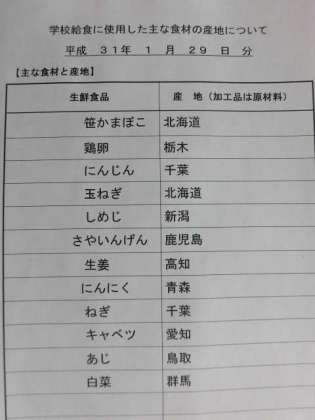 学校給食に使用した主な食材の産地について
平成 31年 1 月 29 日 分
【主な食材と産地】
生鮮食品 産 地（加工品は原材料）
笹かまぼこ 北海道
鶏卵 栃木
にんじん 千葉
玉ねぎ 北海道
しめじ 新潟
さやいんげん 鹿児島
生姜 高知
にんにく 青森
ねぎ 千葉
キャベツ 愛知
あじ 鳥取
白菜 群馬